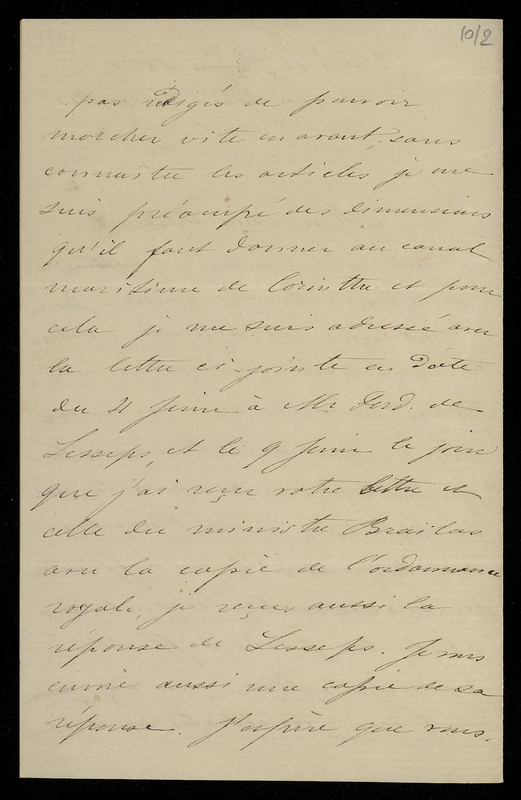 10/2
pas rédigés de pouvoir
marcher vite en avant, sans
connaître les articles je me
suis préoccupé des dimensions
qu'il faut donner au canal
maritime de Corinthe et pour
cela je me suis adressé avec
la lettre ci-jointe en date
du 4 Juin à Mr Ferd. de
Lesseps, et le 9 Juin le jour
que j'ai reçu votre lettre et
celle du ministre Brailas
avec la copie de l'ordonnance
royale, je reçus aussi la
réponse de Lesseps. Je vous
envoie aussi une copie de sa
réponse. J'espère que vous.